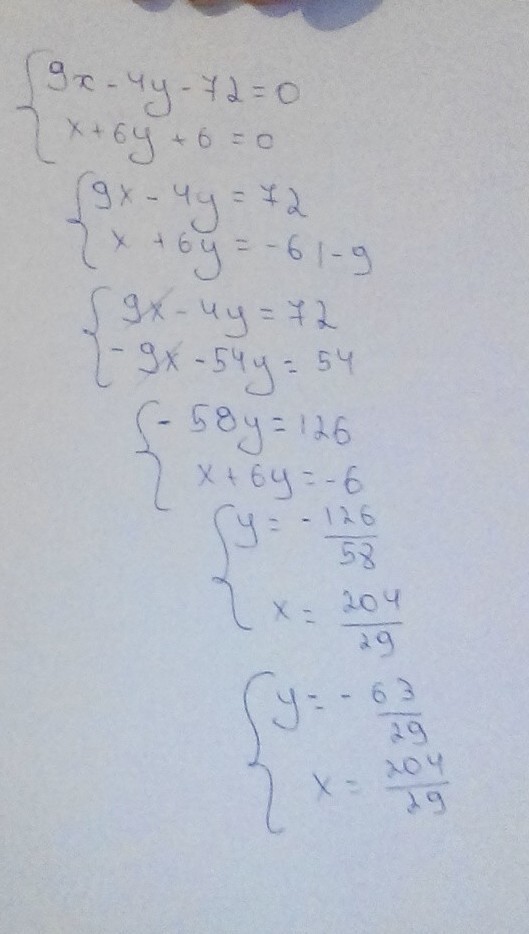 9x - 4y - 72 = 0
x + 6y + 6 = 0
9x - 4y = 72
x + 6y = -6 | -9
9x - 4y = 72
-9x - 54y = 54
-58y = 126
x + 6y = -6
y = -126/58
x = 204/29
y = -63/29
x = 204/29